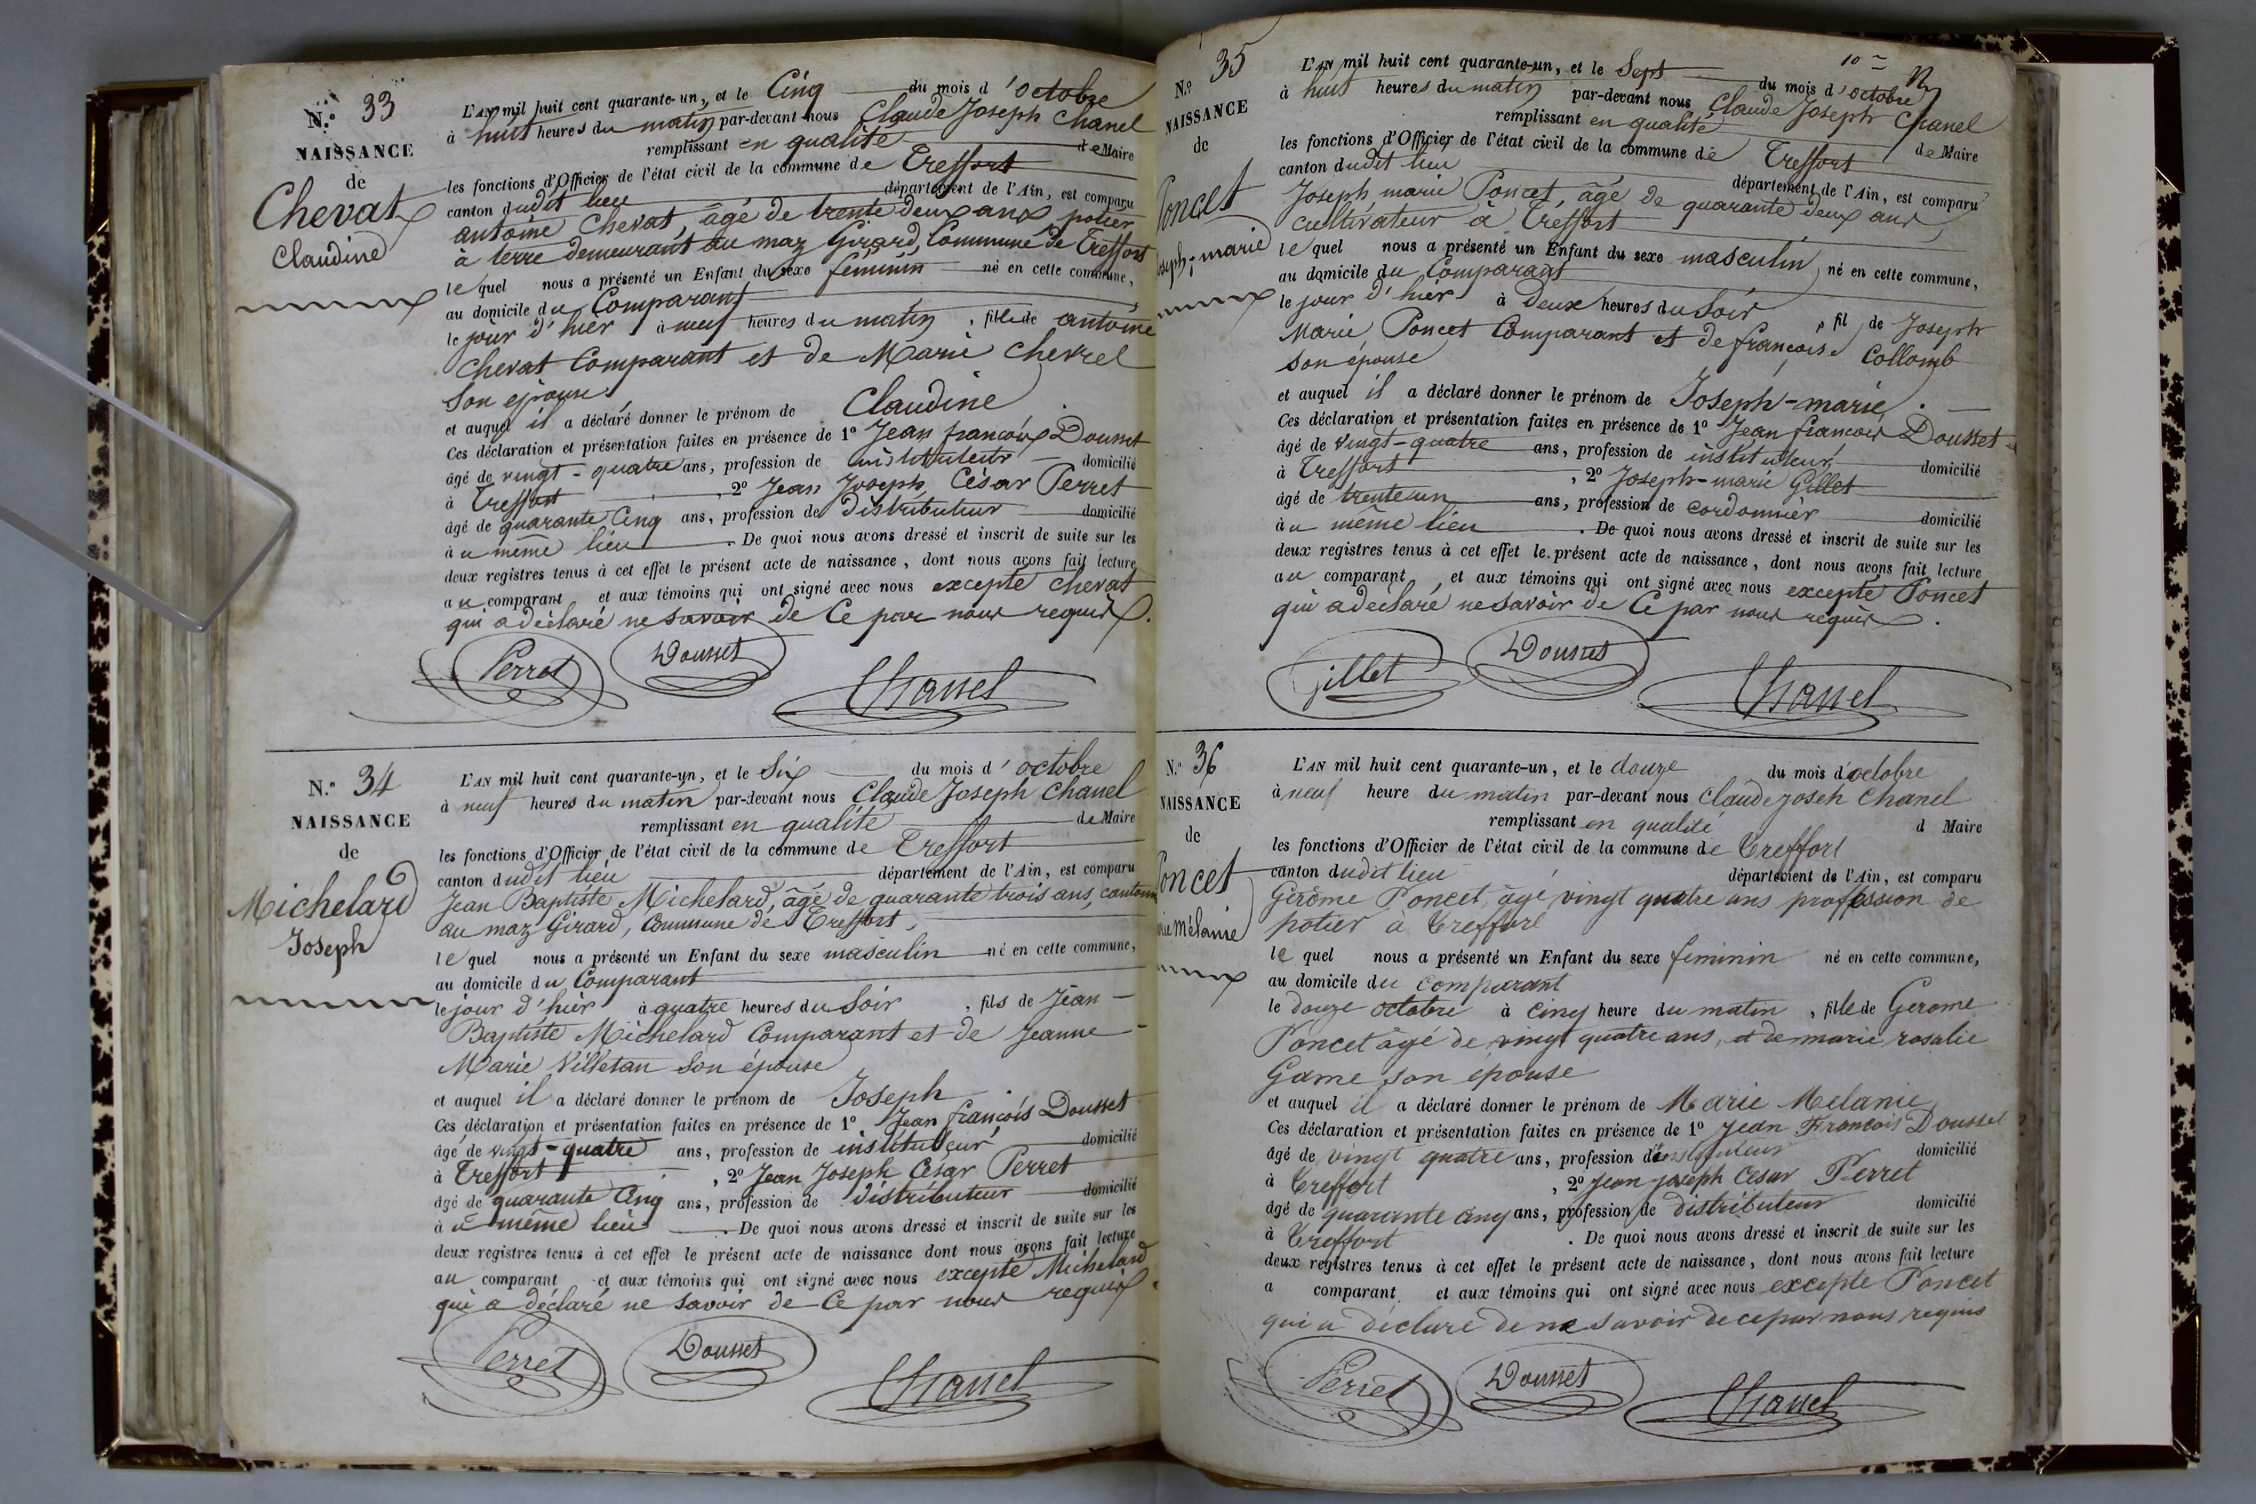 N.º 33
NAISSANCE
de
Chevat
Claudine
L'AN mil huit cent quarante-un, et le Cinq du mois d'octobre
à huit heures du matin par-devant nous Claude Joseph Chanel
remplissant en qualité de Maire
les fonctions d'Officier de l'état civil de la commune de Treffort
canton dudit lieu département de l'Ain, est comparu
antoine Chevat âgé de trente deux ans potier
à terre demeurant au maz Girard, Commune de Treffort
le quel nous a présenté un Enfant du sexe féminin né en cette commune,
au domicile du Comparant
le jour d'hier à neuf heures du matin, fille de antoine
Chevat Comparant et de Marie Chevrel
son épouse
et auquel il a déclaré donner le prénom de Claudine
Ces déclaration et présentation faites en présence de 1º Jean francois Dousset
âgé de vingt-quatre ans, profession de instituteur domicilié
à Treffort, 2º Jean Joseph César Perret
âgé de quarante Cinq ans, profession de distributeur domicilié
à u même lieu. De quoi nous avons dressé et inscrit de suite sur les
deux registres tenus à cet effet le présent acte de naissance, dont nous avons fait lecture
au comparant et aux témoins qui ont signé avec nous excepté chevat
qui a déclaré ne savoir de Ce par nous requis.
Perret Dousset Chanel
N.º 34
NAISSANCE
de
Michelard
Joseph
L'AN mil huit cent quarante-un, et le Six du mois d'octobre
à neuf heures du matin par-devant nous Claude Joseph Chanel
remplissant en qualité de Maire
les fonctions d'Officier de l'état civil de la commune de Treffort
canton dudit lieu département de l'Ain, est comparu
Jean Baptiste Michelard, âgé de quarante trois ans,
au maz Girard, Commune de Treffort,
le quel nous a présenté un Enfant du sexe masculin né en cette commune,
au domicile du Comparant
le jour d'hier à quatre heures du Soir, fils de Jean
Baptiste Michelard Comparant et de Jeanne
Marie Villetan son épouse
et auquel il a déclaré donner le prénom de Joseph
Ces déclaration et présentation faites en présence de 1º Jean francois Dousset
âgé de vingt-quatre ans, profession de instituteur domicilié
à Treffort, 2º Jean Joseph César Perret
âgé de quarante Cinq ans, profession de distributeur domicilié
à u même lieu. De quoi nous avons dressé et inscrit de suite sur les
deux registres tenus à cet effet le présent acte de naissance dont nous avons fait lecture
au comparant et aux témoins qui ont signé avec nous excepté Michelard
qui a déclaré ne savoir de Ce par nous requis
Perret Dousset Chanel
10
N.º 35
NAISSANCE
de
Poncet
Joseph-marie
L'AN mil huit cent quarante-un, et le Sept du mois d'octobre
à huit heures du matin par-devant nous Claude Joseph Chanel
remplissant en qualité de Maire
les fonctions d'Officier de l'état civil de la commune de Treffort
canton dudit lieu département de l'Ain, est comparu
Joseph marie Poncet, âgé de quarante deux ans
cultivateur à Treffort
le quel nous a présenté un Enfant du sexe masculin né en cette commune,
au domicile du Comparant
le jour d'hier à deux heures du Soir, fil de Joseph
Marie Poncet Comparant et de francoise Collomb
son épouse
et auquel il a déclaré donner le prénom de Joseph-marie.
Ces déclaration et présentation faites en présence de 1º Jean francois Dousset
âgé de vingt-quatre ans, profession de instituteur domicilié
à Treffort, 2º Joseph-marie Gillet
âgé de trente un ans, profession de cordonnier domicilié
à u même lieu. De quoi nous avons dressé et inscrit de suite sur les
deux registres tenus à cet effet le présent acte de naissance, dont nous avons fait lecture
au comparant, et aux témoins qui ont signé avec nous excepté Poncet
qui a déclaré ne savoir de Ce par nous requis.
Gillet Dousset Chanel
N.º 36
NAISSANCE
de
Poncet
Marie Mélanie
L'AN mil huit cent quarante-un, et le douze du mois d'octobre
à neuf heure du matin par-devant nous Claude joseh Chanel
remplissant en qualité d Maire
les fonctions d'Officier de l'état civil de la commune de Treffort
canton dudit lieu département de l'Ain, est comparu
Gérôme Poncet, âgé vingt quatre ans proffession de
potier à Treffort
le quel nous a présenté un Enfant du sexe feminin né en cette commune,
au domicile du comparant
le douze octobre à cinq heure du matin, fille de Gerome
Poncet âgé de vingt quatre ans, et de marie rosalie
Game son épouse
et auquel il a déclaré donner le prénom de Marie Melanie
Ces déclaration et présentation faites en présence de 1º Jean Francois Dousset
âgé de vingt quatre ans, profession d'instituteur domicilié
à Treffort, 2º Jean joseph César Perret
âgé de quarante cinq ans, profession de distributeur domicilié
à Treffort. De quoi nous avons dressé et inscrit de suite sur les
deux registres tenus à cet effet le présent acte de naissance, dont nous avons fait lecture
a comparant et aux témoins qui ont signé avec nous excepté Poncet
qui a déclaré de ne savoir de ce par nous requis
Perret Dousset Chanel